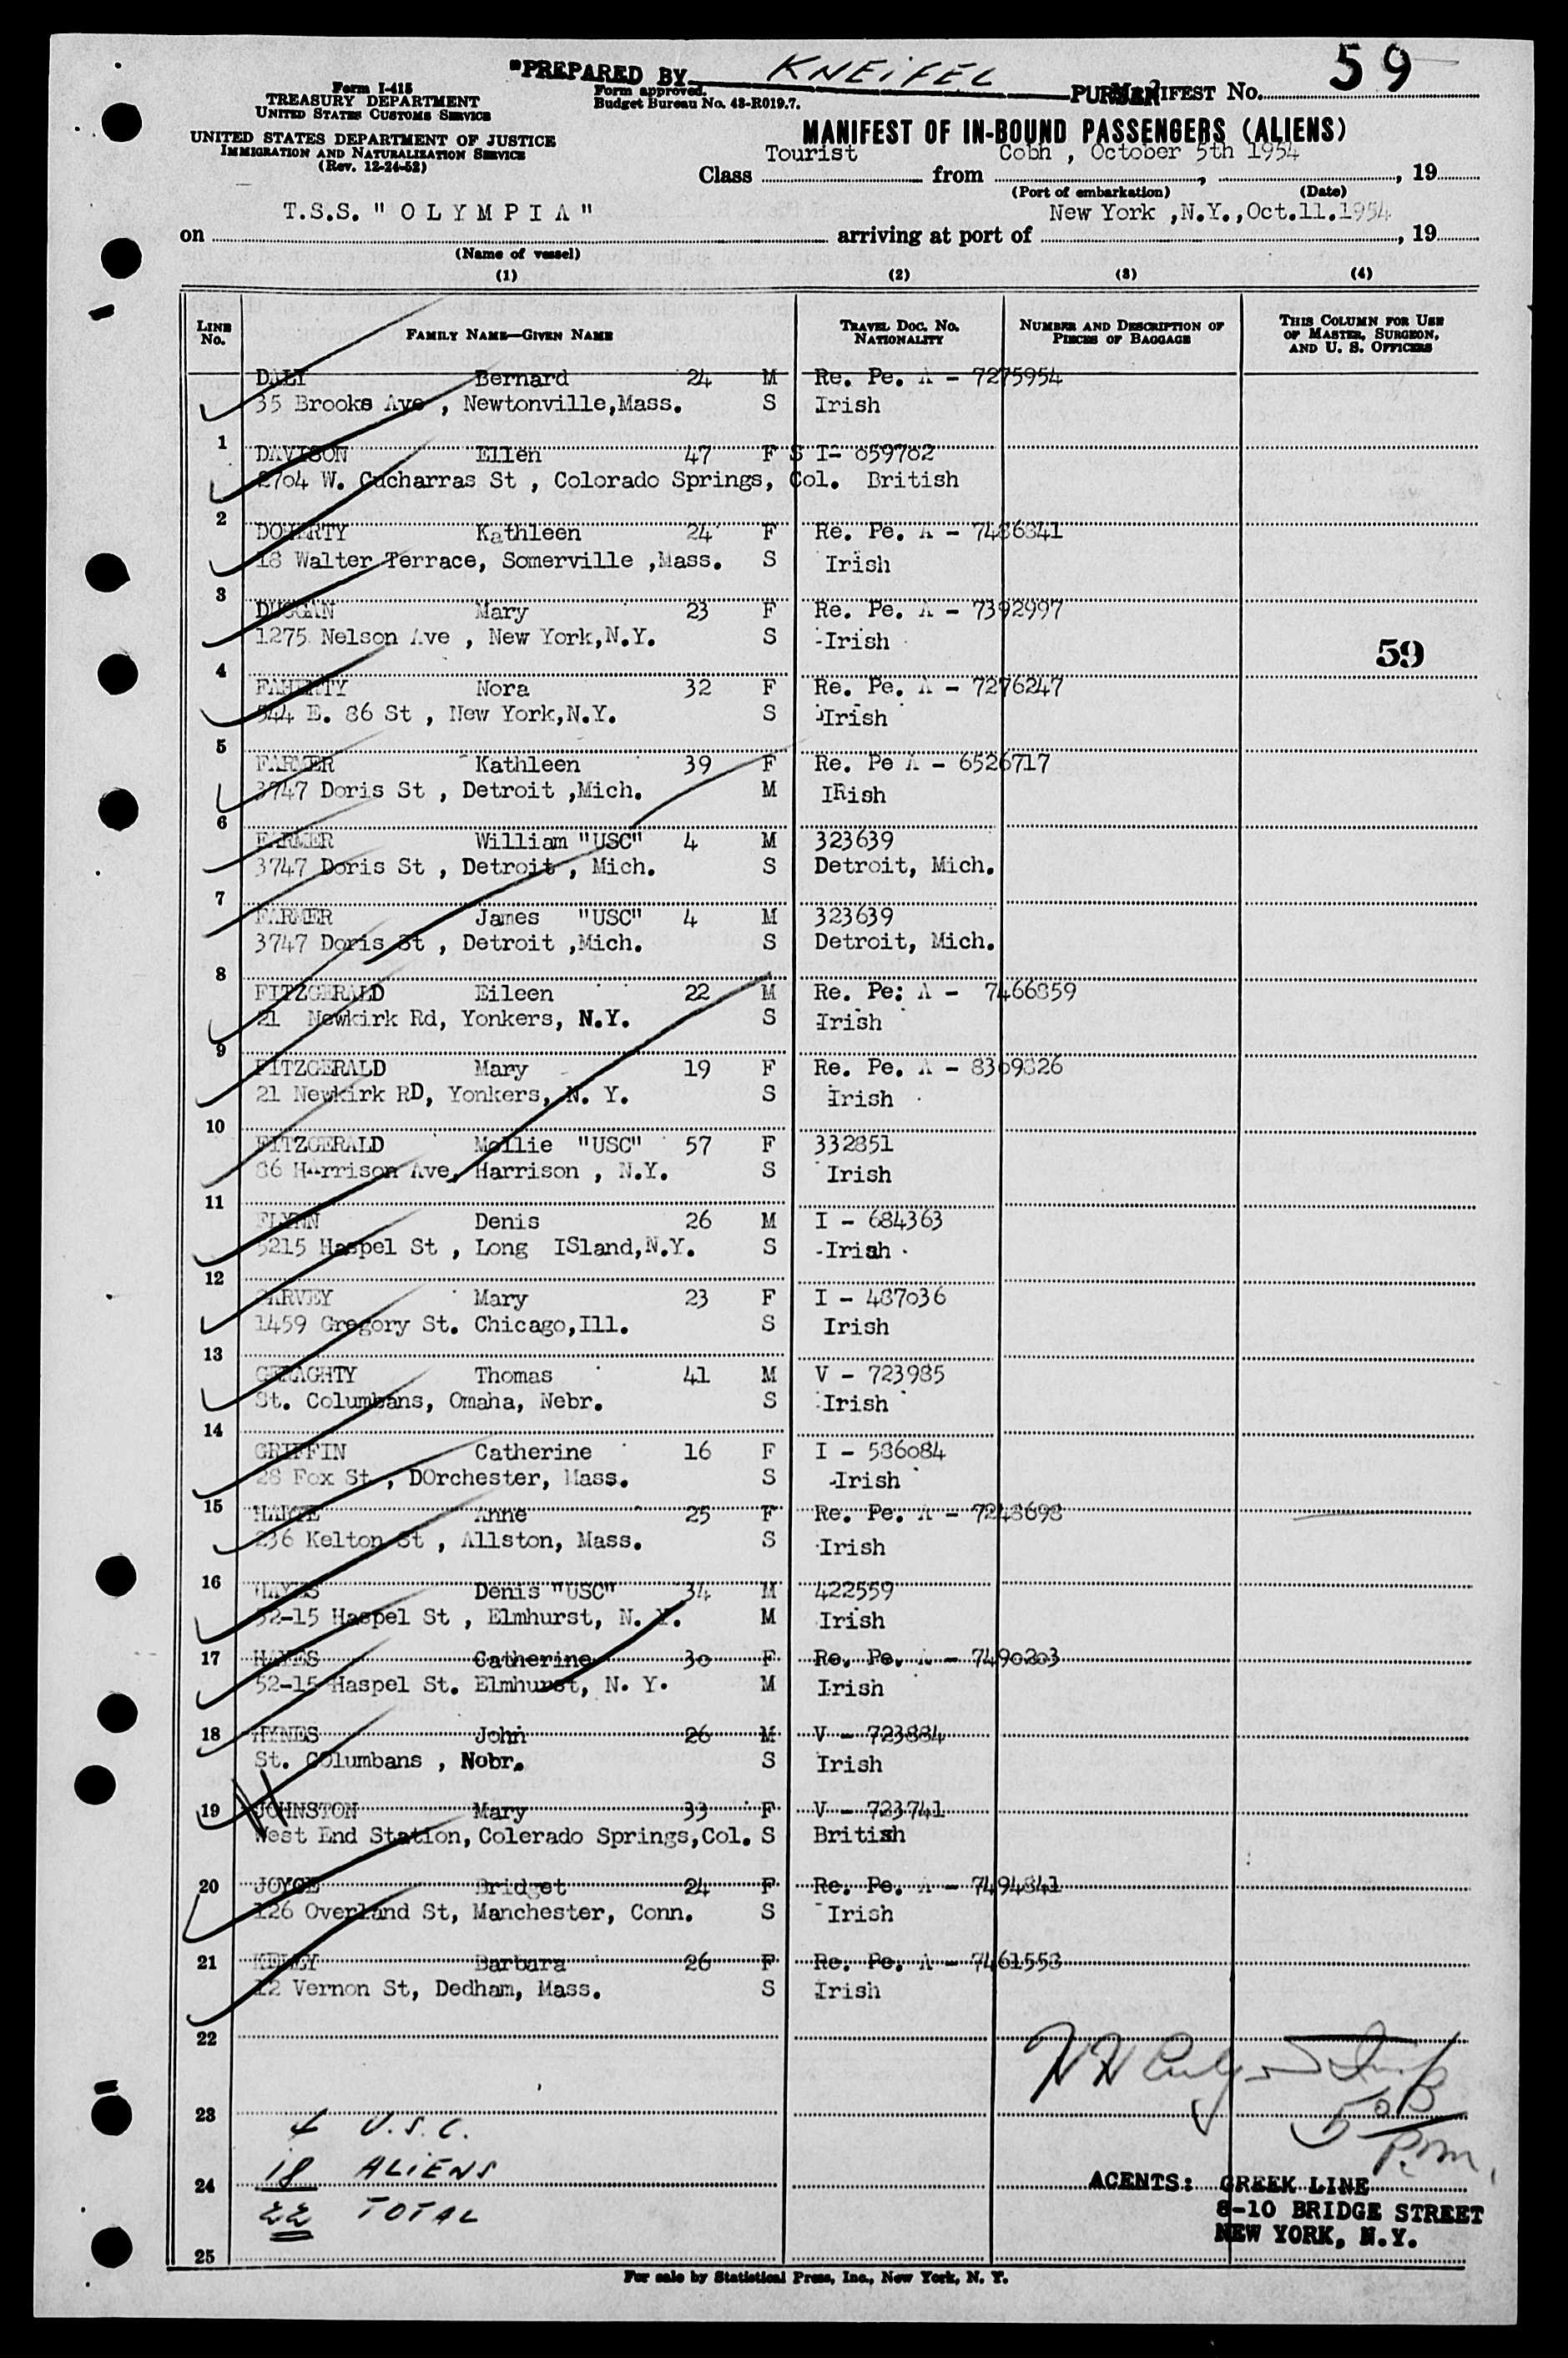 "PREPARED BY KNEIFEL PURSER MANIFEST No. 59
Form I-415
TREASURY DEPARTMENT
UNITED STATES CUSTOMS SERVICE
Form approved.
Budget Bureau No. 43-R019.7.
UNITED STATES DEPARTMENT OF JUSTICE
IMMIGRATION AND NATURALIZATION SERVICE
(Rev. 12-24-52)
MANIFEST OF IN-BOUND PASSENGERS (ALIENS)
Class Tourist from Cobh , October 5th 1954, 19
(Port of embarkation) (Date)
on T.S.S. "OLYMPIA" arriving at port of New York ,N.Y.,Oct.11.1954, 19
(Name of vessel)
(1) (2) (3) (4)
LINE No. FAMILY NAME—GIVEN NAME TRAVEL DOC. No. NATIONALITY NUMBER AND DESCRIPTION OF PIECES OF BAGGAGE THIS COLUMN FOR USE OF MASTER, SURGEON, AND U. S. OFFICERS
DALY Bernard 24 M Re. Pe. A - 7275954
35 Brooks Ave , Newtonville,Mass. S Irish
1
DAVISON Ellen 47 F S I- 859702
2704 W. Cucharras St , Colorado Springs, Col. British
2
DOHERTY Kathleen 24 F Re. Pe. A - 7486841
18 Walter Terrace, Somerville ,Mass. S Irish
3
DUGGAN Mary 23 F Re. Pe. A - 7392997
1275 Nelson Ave , New York,N.Y. S Irish
59
4
FAHERTY Nora 32 F Re. Pe. A - 7276247
544 E. 86 St , New York,N.Y. S Irish
5
FARMER Kathleen 39 F Re. Pe A - 6526717
3747 Doris St , Detroit ,Mich. M IRish
6
FARMER William "USC" 4 M 323639
3747 Doris St , Detroit , Mich. S Detroit, Mich.
7
FARMER James "USC" 4 M 323639
3747 Doris St , Detroit ,Mich. S Detroit, Mich.
8
FITZGERALD Eileen 22 M Re. Pe: A - 7466859
21 Newkirk Rd, Yonkers, N.Y. S Irish
9
FITZGERALD Mary 19 F Re. Pe. A - 8369826
21 Newkirk RD, Yonkers, N. Y. S Irish
10
FITZGERALD Mollie "USC" 57 F 332851
86 Harrison Ave, Harrison , N.Y. S Irish
11
FLYNN Denis 26 M I - 684363
5215 Haspel St , Long ISland,N.Y. S Irish
12
GARVEY Mary 23 F I - 487036
1459 Gregory St. Chicago,Ill. S Irish
13
GERAGHTY Thomas 41 M V - 723985
St. Columbans, Omaha, Nebr. S Irish
14
GRIFFIN Catherine 16 F I - 586084
28 Fox St , DOrchester, Mass. S Irish
15
HARTE Anne 25 F Re. Pe. A - 7248698
236 Kelton St , Allston, Mass. S Irish
16
HAYES Denis "USC" 34 M 422559
52-15 Haspel St , Elmhurst, N. Y. M Irish
17 HAYES Catherine 30 F Re. Pe. A - 7490203
52-15 Haspel St. Elmhurst, N. Y. M Irish
18 HYNES John 26 M V - 723884
St. COlumbans , Nebr. S Irish
19 JOHNSTON Mary 33 F V - 723741
West End Station, Colerado Springs,Col. S British
20 JOYCE Bridget 24 F Re. Pe. A - 7494841
126 Overland St, Manchester, Conn. S Irish
21 KELLY Barbara 26 F Re. Pe. A - 7461553
12 Vernon St, Dedham, Mass. S Irish
22
23
4 U.S.C.
18 ALIENS
24
22 TOTAL
AGENTS: GREEK LINE
8-10 BRIDGE STREET
NEW YORK, N.Y.
25
For sale by Statistical Press, Inc., New York, N. Y.